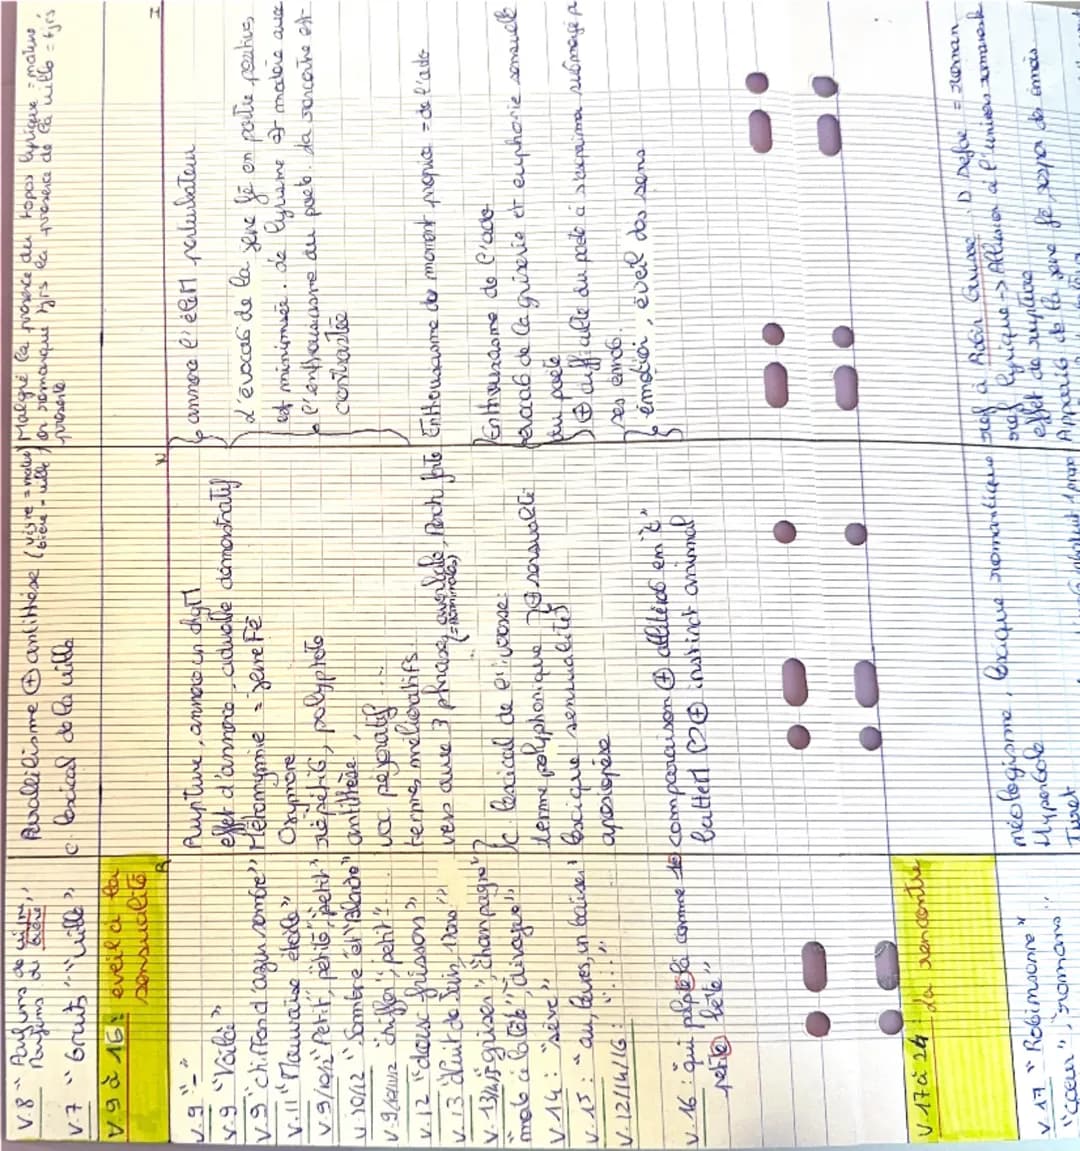 V.8 "Parfums de vigne, Parfums de bière"
Parallélisme ⊕ antithèse (vigne = nature / bière = ville)
Malgré la présence du topos lyrique = nature,
on remarque tjrs la présence de la ville = tjrs
présente
V.7 "bruits", "ville"
C. lexical de la ville
V.9 à 16 : éveil à la
sensualité
V.9 "-"
Rupture, annonce un chgM
annonce l'éléM perturbateur
V.9 "Voilà"
effet d'annonce, actuelle démonstratif
V.9 "chiffon d'azur sombre"
Métonymie = jeune Fé
V.11 "Mauvaise étoile"
Oxymore
V.9/10/12 "Petit, petite, petit"
répétit°, polyptote
V.10/12 "Sombre" et "Blanche"
antithèse
V.9/10/12 "chiffon", "petit"
voc péjoratif ...
L'évocat° de la jeune fé en partie perdue,
est minimisée. Le lyrisme et
l'enthousiasme du poète. La
contrastée
V.12 "doux frissons"
termes mélioratifs
V.13 "Nuit de Juin, 17ans"
vers avec 3 phrases averbales, Ponct forte
(= nominales)
Enthousiasme du moment propice = de l'ado
V.13/14/15 "griser", "champagne"
"monte à la tête", "divague"
C. lexical de l'ivresse
Enthousiasme de l'ado
évocat° de la griserie et euphorie sensuelle
du poète
V.14 : "sève"
terme polyphonique → ⊕ sensualité
V.15 : "aux lèvres, un baiser"
lexique sensualité
⊕ difficulté du poète à s'exprimer submergé p
ses émot°
V.12/14/16 : "..."
aposiopèse
V.16 : "qui palpite là comme 1e
petite bête"
comparaison ⊕ allitérat° en "t"
battem ⊕ instinct animal
émotion, éveil des sens
V.17 à 24 : La rencontre
V.17 "Robinsonne"
néologisme, lexique romantique
réf à Robin Crusoé. D Defoe = roman
"cœur", "romans"
Hyperbole
réf lyrique → Allusion à l'univers romanesk
effet de rupture
Tiret